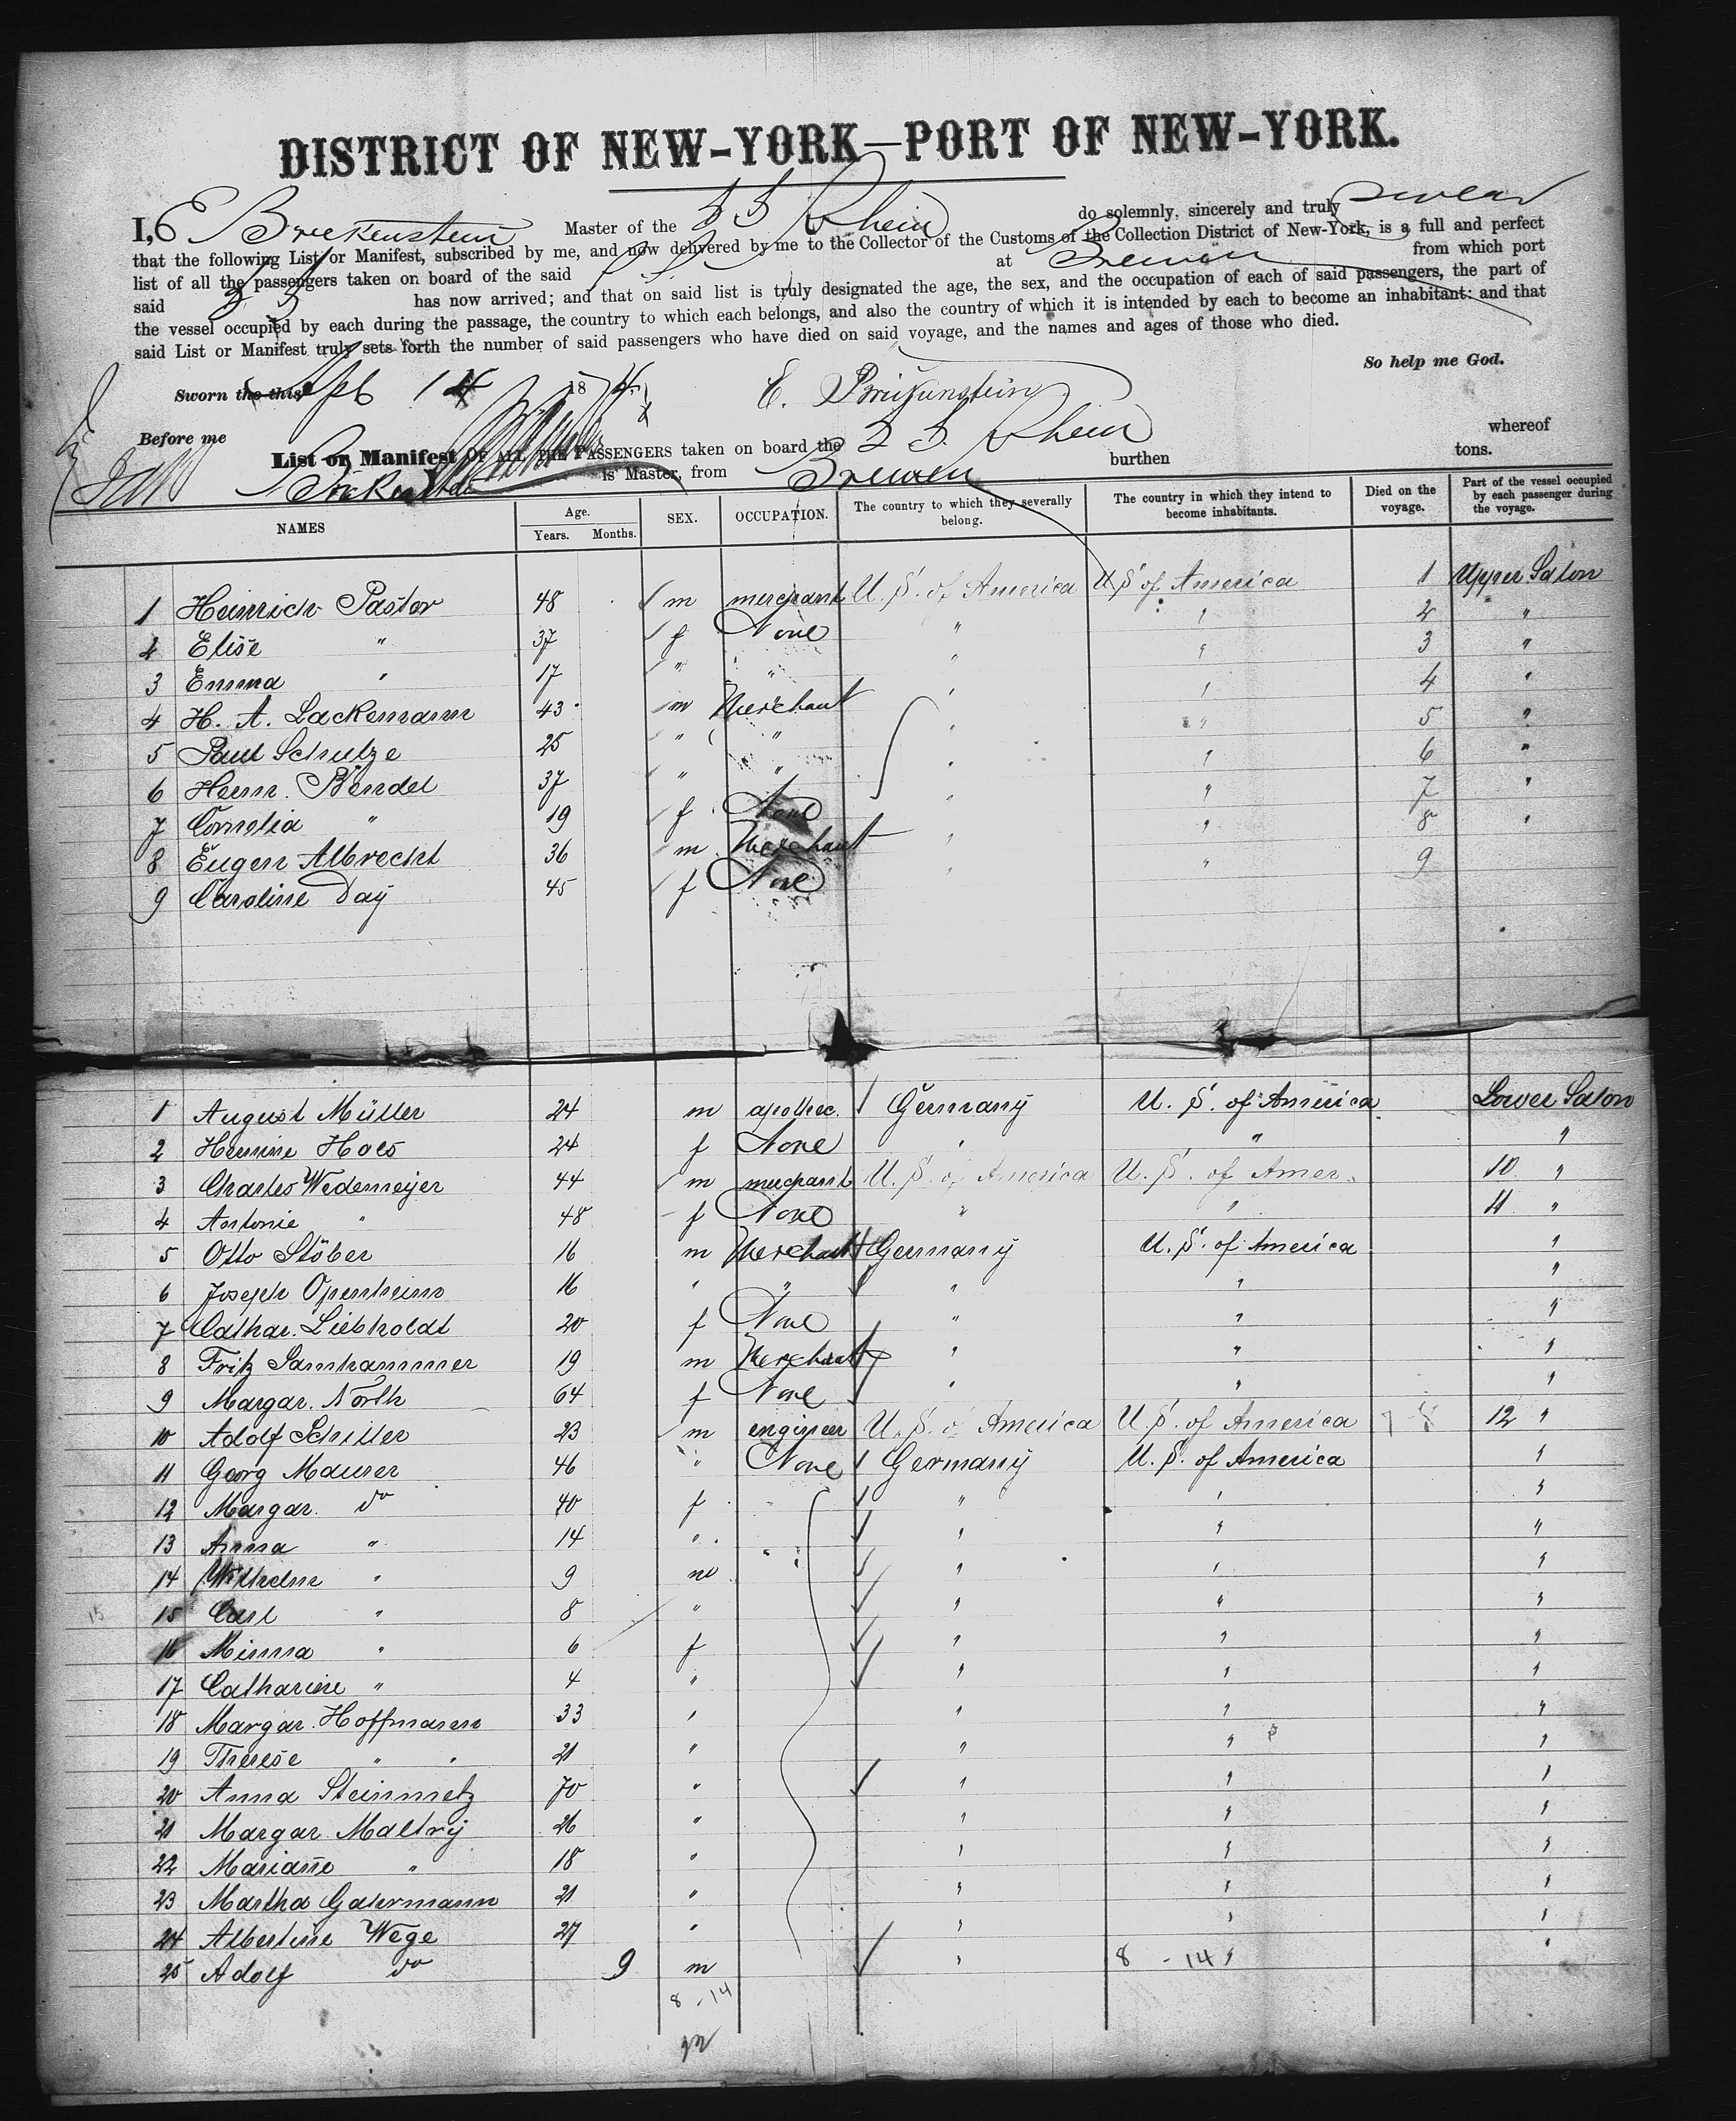 DISTRICT OF NEW-YORK—PORT OF NEW-YORK.
I, E Brickenstein Master of the S S Rhein do solemnly, sincerely and truly swear
that the following List or Manifest, subscribed by me, and now delivered by me to the Collector of the Customs of the Collection District of New-York, is a full and perfect
list of all the passengers taken on board of the said S S at Bremen from which port
said S S has now arrived; and that on said list is truly designated the age, the sex, and the occupation of each of said passengers, the part of
the vessel occupied by each during the passage, the country to which each belongs, and also the country of which it is intended by each to become an inhabitant: and that
said List or Manifest truly sets forth the number of said passengers who have died on said voyage, and the names and ages of those who died.
So help me God.
Sworn tho this 14 1874 E. Brickenstein
Before me
List or Manifest OF ALL THE PASSENGERS taken on board the S S. Rhein whereof
is Master, from Bremen burthen tons.
NAMES Age. Years. Months. SEX. OCCUPATION. The country to which they severally belong. The country in which they intend to become inhabitants. Died on the voyage. Part of the vessel occupied by each passenger during the voyage.
1 Heinrich Pastor 48 m merchant U. S. of America U S of America 1 Upper Salon
2 Elise " 37 f None " " 2 "
3 Emma " 17 " " " " 3 "
4 H. A. Lackemann 43 m Merchant " " 4 "
5 Paul Schulze 25 " " " " 5 "
6 Heinr. Bendel 37 " " " " 6 "
7 Cornelia " 19 f None " " 7 "
8 Eugen Albrecht 36 m Merchant " " 8 "
9 Caroline Day 45 f None " " 9
1 August Müller 24 m apothec. Germany U. S. of America Lower Salon
2 Hermine Hoes 24 f None " " "
3 Charles Wedemeyer 44 m merchant U. S. of America U. S. of Amer. 10 "
4 Antonie " 48 f None " " 11 "
5 Otto Stöber 16 m Merchant Germany U. S. of America "
6 Joseph Openheim 16 " " " " "
7 Cathar. Liebholdt 20 f None " " "
8 Fritz Samhammer 19 m Merchant " " "
9 Margar. North 64 f None " " "
10 Adolf Schiller 23 m engineer U. S. of America U. S. of America 12 "
11 Georg Maurer 46 " None Germany U. S. of America "
12 Margar. do 40 f " " "
13 Anna " 14 " " " "
14 Wilhelm " 9 m " " "
15 15 Carl " 8 " " " "
16 Minna " 6 f " " "
17 Catharine " 4 " " " "
18 Margar. Hoffmann 33 " " " "
19 Therese " " 21 " " " "
20 Anna Steinmetz 70 " " " "
21 Margar. Maltry 26 " " " "
22 Marianne " 18 " " " "
23 Martha Gahrmann 21 " " " "
24 Albertine Wege 27 " " " "
25 Adolf do 9 m " 8 - 14 " "
8 - 14
22